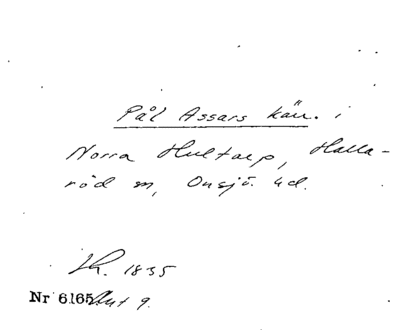 Pål Assars kän. i
Norra Hultarp, Halla-
röd sn, Onsjö hd.
Kh. 1835
Nr 6165 Aut 9.